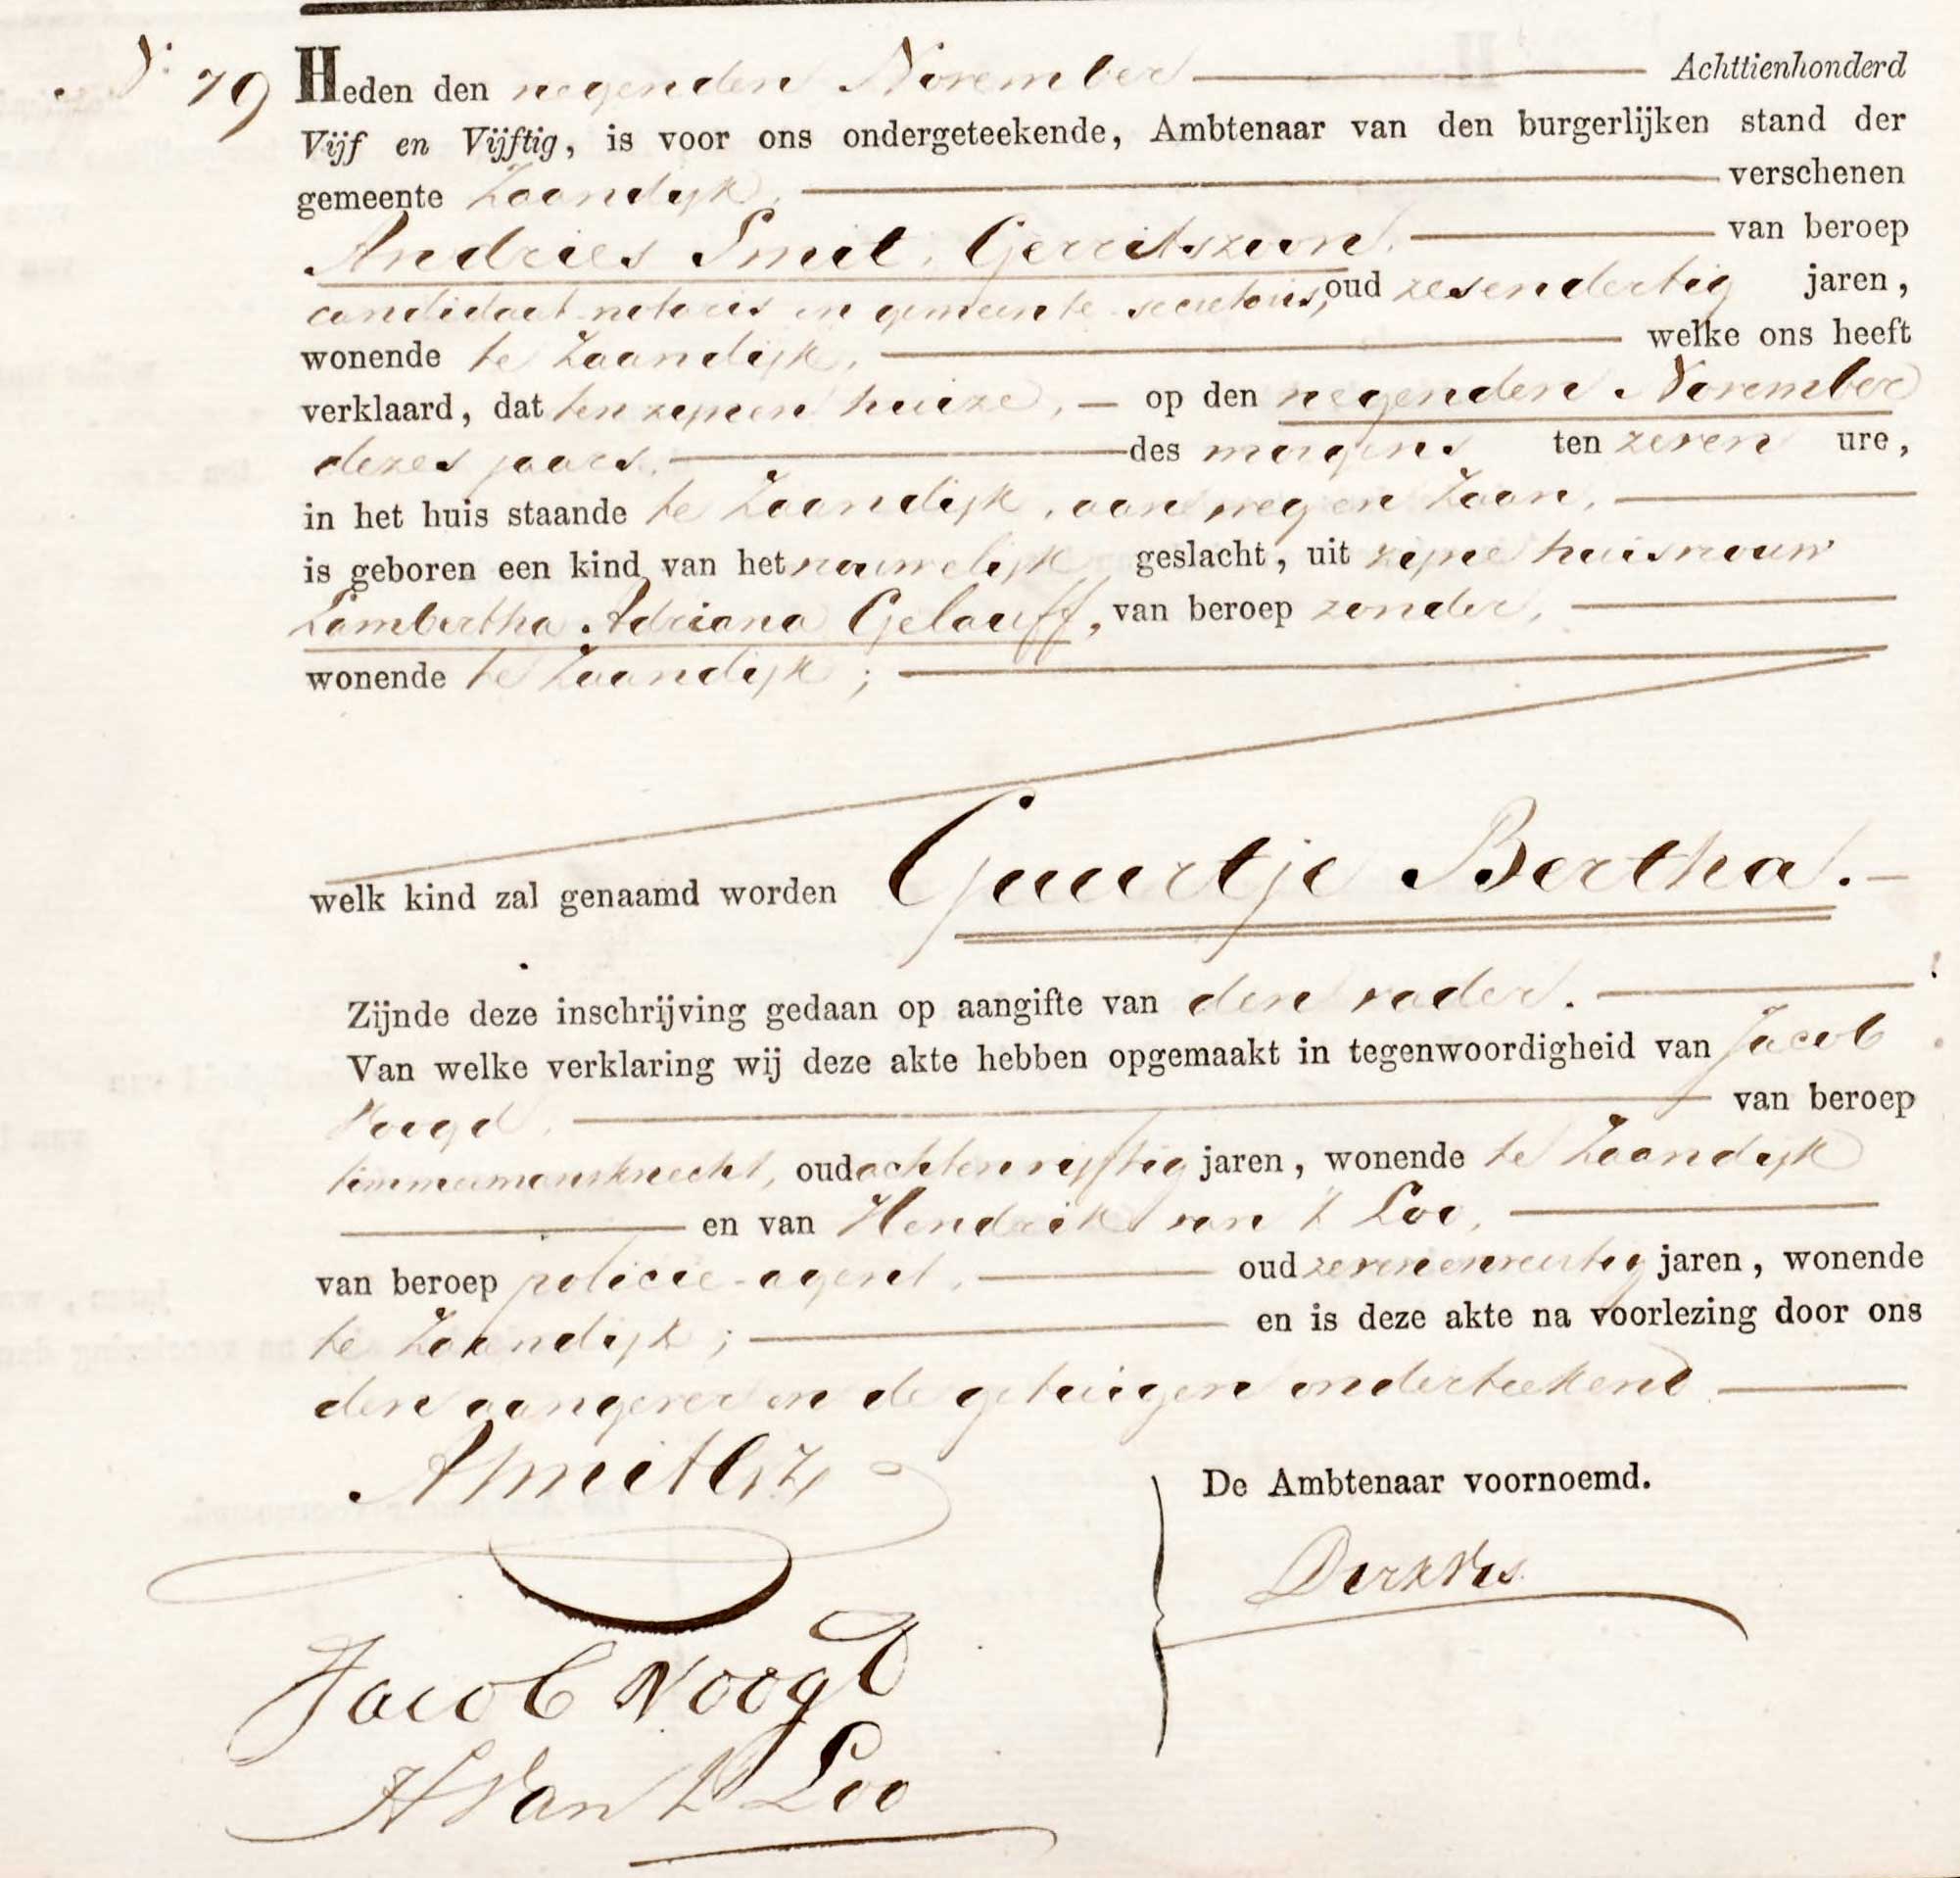 N: 79 Heden den negenden November Achttienhonderd
Vijf en Vijftig, is voor ons ondergeteekende, Ambtenaar van den burgerlijken stand der
gemeente Zaandijk, verschenen
Andries Smit, Gerritszoon, van beroep
candidaat-notaris en gemeente-secretaris, oud zesendertig jaren,
wonende te Zaandijk, welke ons heeft
verklaard, dat ten zijnen huize, – op den negenden November
dezes jaars, des morgens ten zeven ure,
in het huis staande te Zaandijk, aan weg en Zaan,
is geboren een kind van het vrouwelijk geslacht, uit zijne huisvrouw
Lambertha Adriana Gelauff, van beroep zonder,
wonende te Zaandijk;
welk kind zal genaamd worden Guurtje Bertha. –
Zijnde deze inschrijving gedaan op aangifte van den vader.
Van welke verklaring wij deze akte hebben opgemaakt in tegenwoordigheid van Jacob
Voogd, van beroep
timmermansknecht, oud achtenvijftig jaren, wonende te Zaandijk
en van Hendrik van 't Loo,
van beroep policie-agent, oud zevenenveertig jaren, wonende
te Zaandijk; en is deze akte na voorlezing door ons
den aangever en de getuigen onderteekend
ASmit Gz
De Ambtenaar voornoemd.
Dirk Vis.
Jacob Voogd
H Van 't Loo